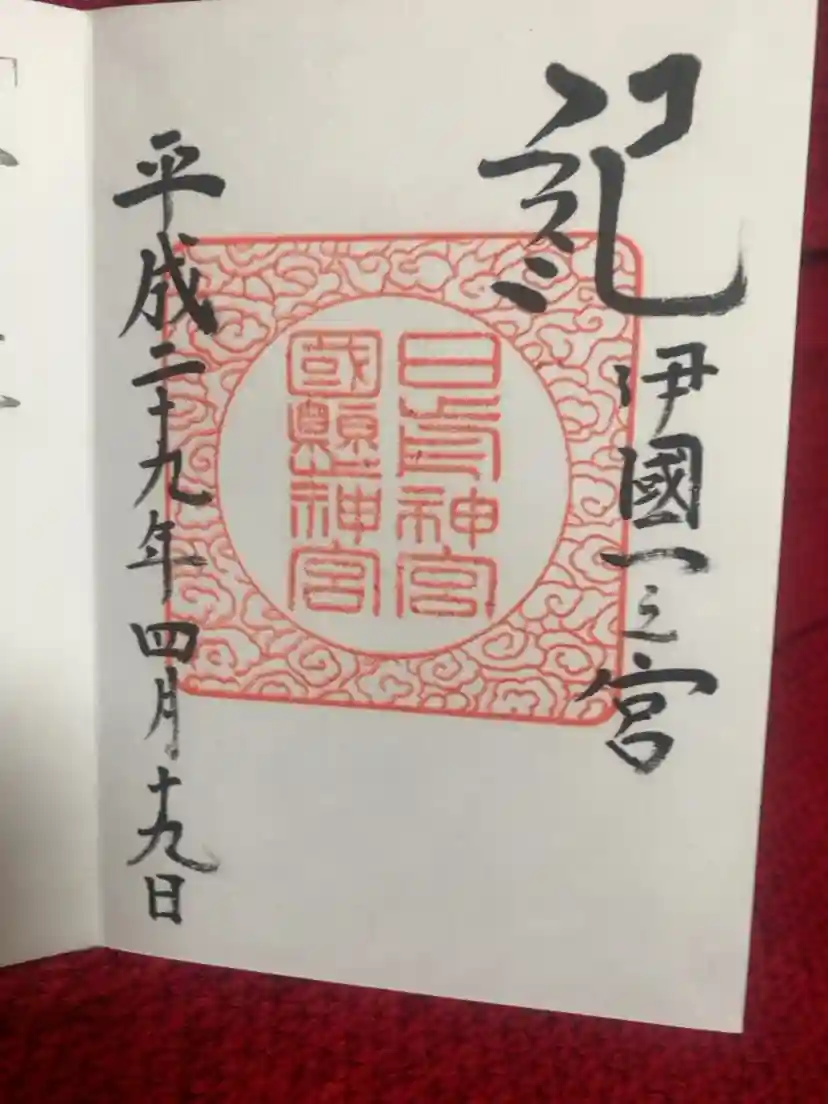 紀伊國一之宮
日前神宮
國懸神宮
平成二十九年四月十九日